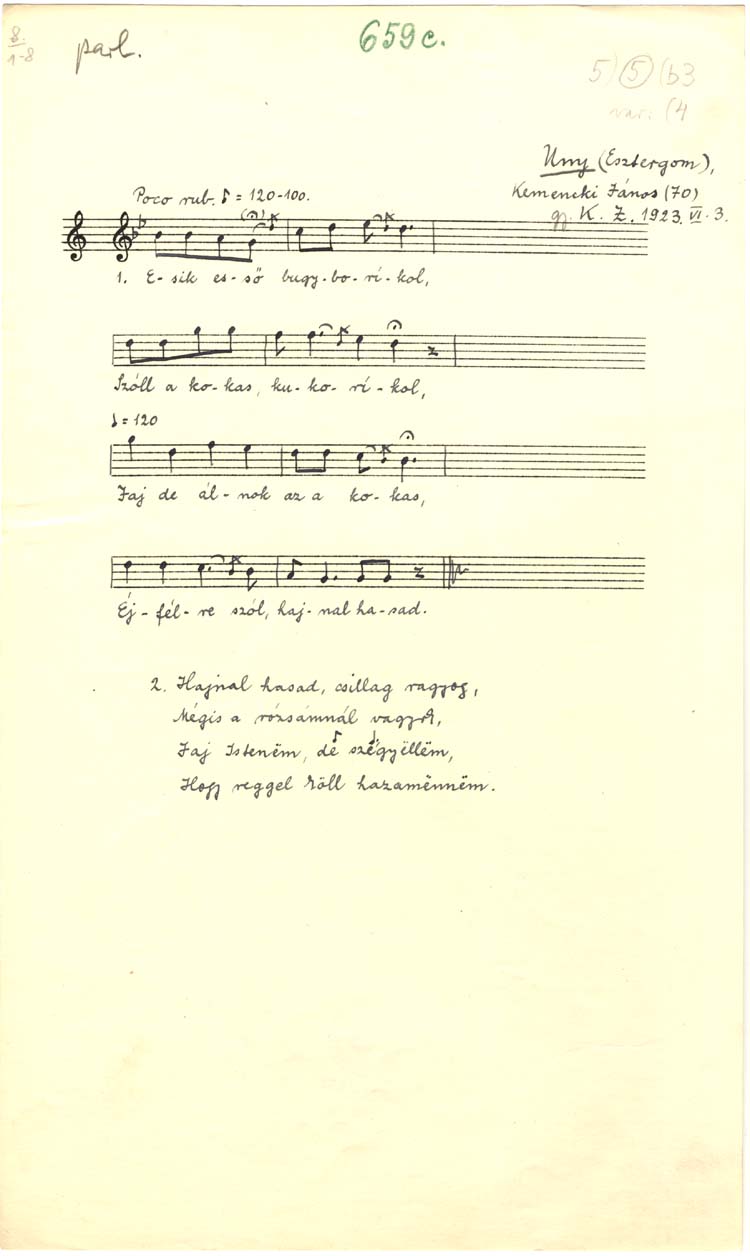 8.
1-8
parl.
659c.
5) 5 (b3
var: (4
Uny (Esztergom),
Kemencki János (70)
gy. K. Z. 1923. VI. 3.
Poco rub. ♪ = 120-100.
1. E-sik es-ső bugy-bo-rí-kol,
Szóll a ko-kas, ku-ko-rí-kol,
♩ = 120
Jaj de ál-nok az a ko-kas,
Éj-fél-re szól, haj-nal ha-sad.
2. Hajnal hasad, csillag ragyog,
Mégis a rózsámnál vagyok,
Jaj Istenëm, de szégyëllëm,
Hogy reggel köll hazamënnëm.